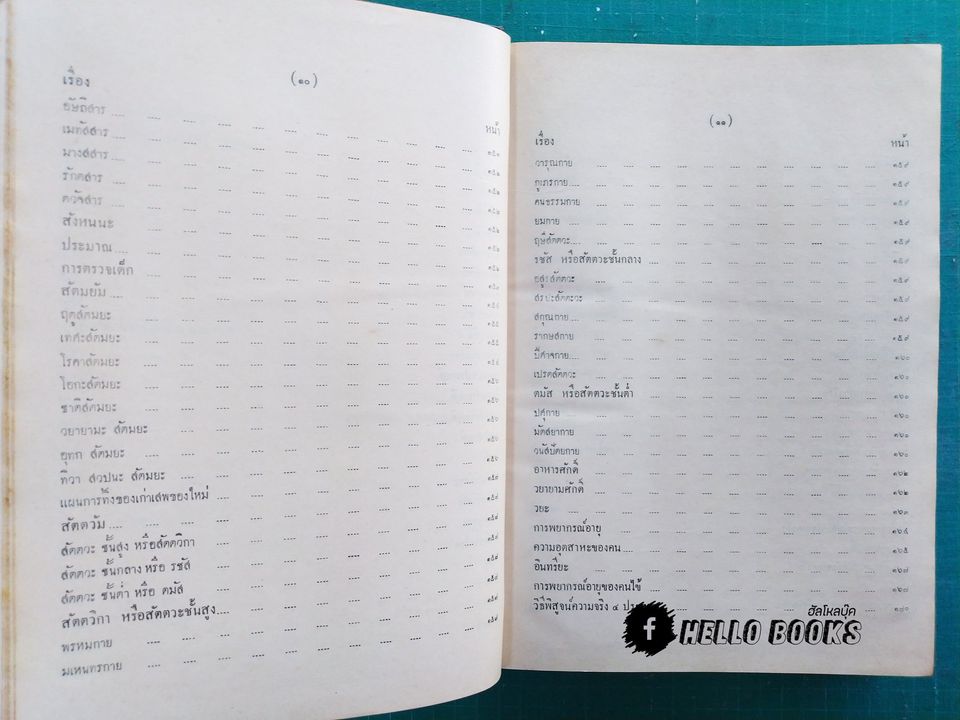 (๑๐)
เรื่อง
หน้า
อัษฏิสาร
เมทัสสาร
มางสสาร
รักตสาร
ตวัจสาร
สังหนนะ
ประมาณ
การตรวจเด็ก
สัตมยัม
ฤตูสัตมยะ
เทศะสัตมยะ
โรคาสัตมยะ
โอกะสัตมยะ
ชาติสัตมยะ
วยายามะ สัตมยะ
อุทก สัตมยะ
ทิวา สวปนะ สัตมยะ
แผนการทิ้งของเก่าเสพของใหม่
สัตตวัม
สัตตวะ ชั้นสูง หรือสัตตวิกา
สัตตวะ ชั้นกลาง หรือ รชัส
สัตตวะ ชั้นต่ำ หรือ ตมัส
สัตตวิกา หรือสัตตวะชั้นสูง
พรหมกาย
มเหนทรกาย
(๑๑)
เรื่อง หน้า
วารุณกาย ๑๕๙
กูเภรกาย ๑๕๙
คนธรรมกาย ๑๕๙
ยมกาย ๑๕๙
ฤษีสัตตวะ ๑๕๙
รชัส หรือสัตตวะชั้นกลาง ๑๕๙
อสูรสัตตวะ ๑๕๙
สรปะสัตตะวะ ๑๕๙
สกุณกาย ๑๕๙
รากษสกาย ๑๕๙
ปีศาจกาย ๑๖๐
เปรตสัตตวะ ๑๖๐
ตมัส หรือสัตตวะชั้นต่ำ ๑๖๐
ปศุกาย ๑๖๐
มัตสยากาย ๑๖๐
วนัสปัตยกาย ๑๖๐
อาหารศักดิ์ ๑๖๒
วยายามศักดิ์ ๑๖๒
วยะ ๑๖๓
การพยากรณ์อายุ ๑๖๔
ความอุตสาหะของคน ๑๖๕
อินทรีย์ะ ๑๖๗
การพยากรณ์อายุของคนไข้ ๑๖๘
วิธีพิสูจน์ความจริง ๔ ๑๗๐
ฮัลโหลบุ๊ค
f HELLO BOOKS